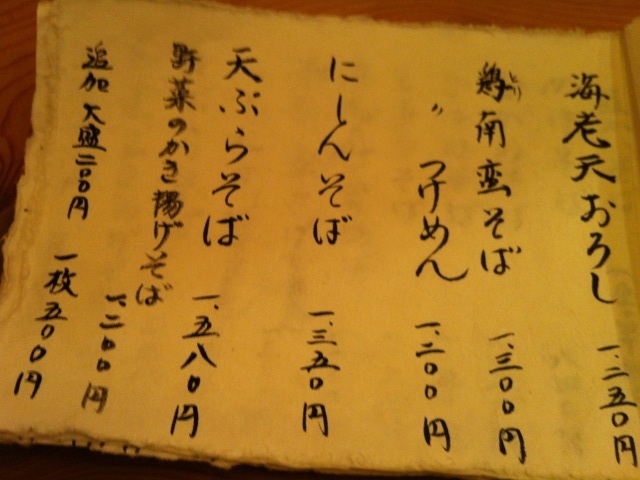 海老天おろし 一、二五〇円
鶏南蛮そば 一、三〇〇円
とり
〃 つけめん 一、二〇〇円
にしんそば 一、三五〇円
天ぷらそば 一、五八〇円
野菜のかき揚げそば 一、二〇〇円
追加 大盛二〇〇円
一枚五〇〇円